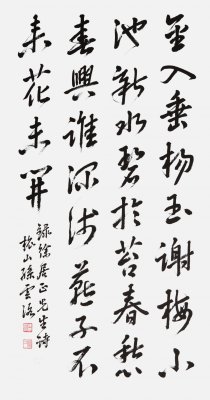 金入垂楊玉謝梅小
池新水碧於苔春愁
春興誰深淺燕子不
來花未開
錄徐居正先生詩
山孫雲